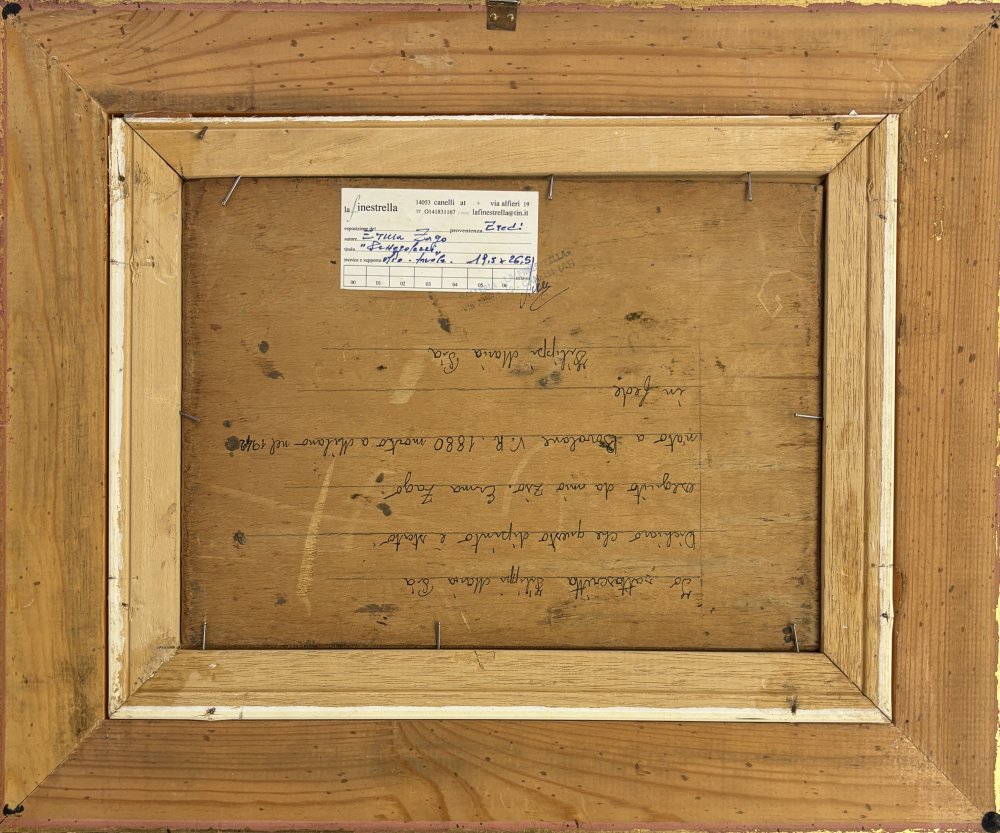 la finestrella
14053 canelli at via alfieri 19
☏ O141831167 lafinestrella@tin.it
esposizione del provenienza Eredi
autore Erma Zago
titolo
tecnica e supporto olio - tavola - 19,5 x 26,5
scheda
00 01 02 03 04 05 06
Io sottoscritta Filippi Maria Pia
Dichiaro che questo dipinto è stato
eseguito da mio zio. Erma Zago
nato a Bovolone V.R. 1880 morto a Milano nel 1942
in fede
Filippi Maria Pia